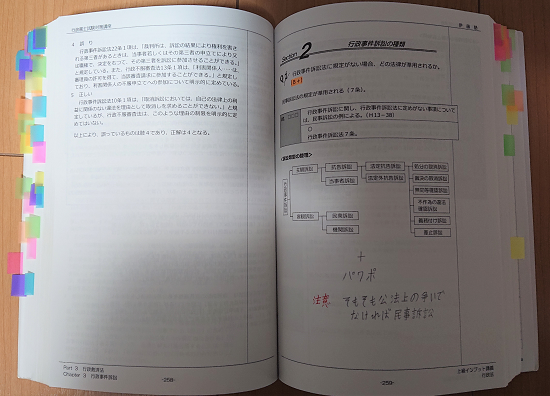 行政書士試験対策講座
4 誤り
行政事件訴訟法22条1項は、「裁判所は、訴訟の結果により権利を害さ
れる第三者があるときは、当事者若しくはその第三者の申立てにより又
は職権で、決定をもつて、その第三者を訴訟に参加させることができる。」
と規定している。また、行政不服審査法13条1項は、「利害関係人…は、
審理員の許可を得て、当該審査請求に参加することができる。」と規定し
ており、利害関係人の不服申立てへの参加について明示的に定めている。
5 正しい
行政事件訴訟法10条1項は、「取消訴訟においては、自己の法律上の利
益に関係のない違法を理由として取消しを求めることができない。」と規
定しているが、行政不服審査法は、このような理由の制限を明示的に定
めてはいない。
以上により、誤っているものは肢4であり、正解は4となる。
Part 3 行政救済法
Chapter 3 行政事件訴訟
-258-
Section 2 行政事件訴訟の種類
行政事件訴訟法に規定がない場合、どの法律が準用されるか。
民事訴訟法の規定が準用される(7条)。
行政事件訴訟に関し、行政事件訴訟法に定めがない事項につい
ては、民事訴訟の例による。(H13-38)
○
行政事件訴訟法7条。
行政事件訴訟
主観訴訟
抗告訴訟
法定抗告訴訟
処分の取消訴訟
当事者訴訟
法定外抗告訴訟
裁決の取消訴訟
無効等確認訴訟
不作為の違法
確認訴訟
義務付け訴訟
差止訴訟
客観訴訟
民衆訴訟
機関訴訟
+
パワポ
注意 そもそも公法上の争いで
なければ民事訴訟
-259-
行政法